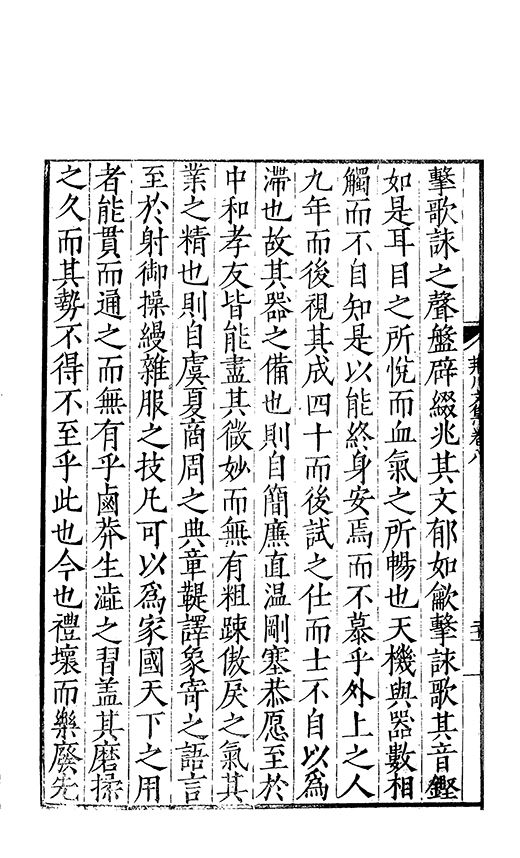 擊歌誄之聲盤辟綴兆其文郁如龡擊誄歌其音鏗
如是耳目之所悅而血氣之所暢也天機與器數相
觸而不自知是以能終身安焉而不慕乎外上之人
九年而後視其成四十而後試之仕而士不自以爲
滯也故其器之備也則自簡廉直温剛塞恭愿至於
中和孝友皆能盡其微妙而無有粗踈傲戾之氣其
業之精也則自虞夏商周之典章鞮譯象寄之語言
至於射御操縵雜服之技凡可以爲家國天下之用
者能貫而通之而無有乎鹵莽生澁之習盖其磨揉
之久而其勢不得不至乎此也今也禮壞而樂廢先
荆川文集卷八